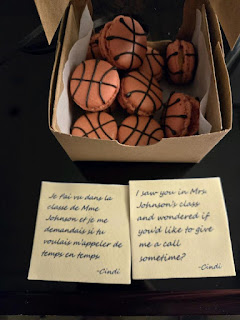 Je t'ai vu dans la
classe de Mme
Johnson et je me
demandais si tu
voulais m'appeler de
temps en temps.
-Cindi
I saw you in Mrs.
Johnson's class
and wondered if
you'd like to give
me a call
sometime?
-Cindi